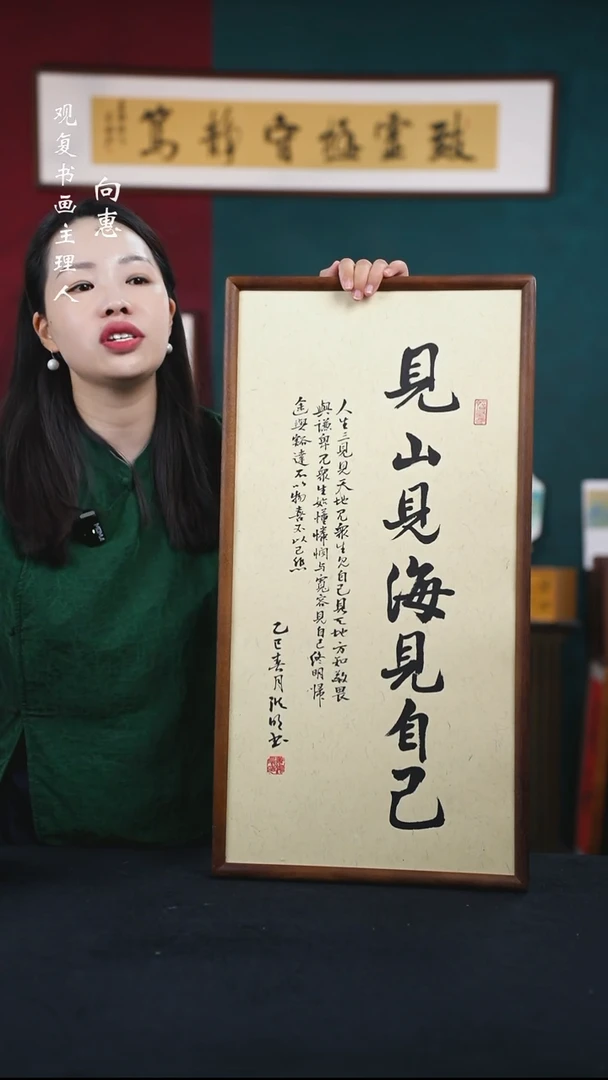 致虛極守靜篤
向惠
观复书画主理人
見山見海見自己
人生三見見天地見衆生見自己見天地方知敬畏
與謙卑見衆生始懂憐憫与寬容見自己終明歸
途與豁達不以物喜不以己悲
乙巳春月